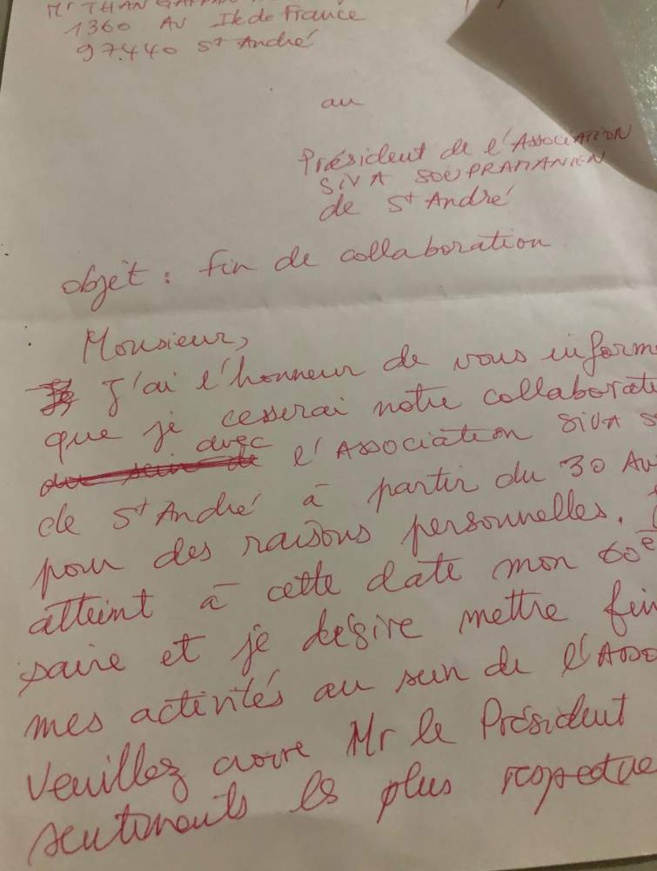 Mr THAN
1360 AV Ile de France
97440 St André
au
Président de l'Association
SIVA SOUPRAMANIEN
de St André
objet : fin de collaboration
Monsieur,
J'ai l'honneur de vous inform
que je cesserai notre collaborati
avec l'Association SIVA S
de St André à partir du 30 Av
pour des raisons personnelles.
atteint à cette date mon 60e
saire et je désire mettre fin
mes activités au sein de l'Asso
Veuillez croire Mr le Président
sentiments les plus respectue